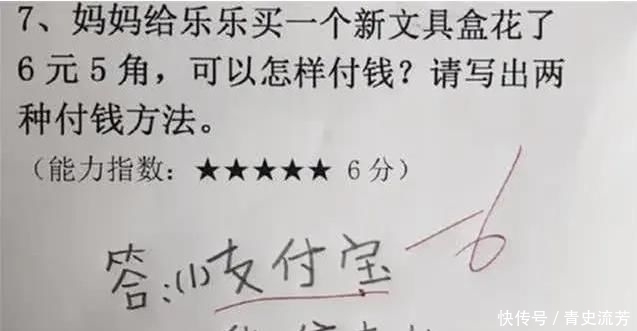 7、妈妈给乐乐买一个新文具盒花了
6元5角，可以怎样付钱？请写出两
种付钱方法。
（能力指数：★★★★★ 6分）
答:(1)支付宝
-6
快传号/青史流芳